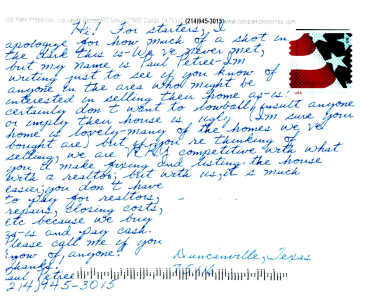 (214)945-3015
Hi! For starters, I
apologize for how much of a shot in
the dark this is-We've never met,
but my name is Paul Petree-Im
writing just to see if you know of
anyone in the area who might be
interested in selling their home as-is! I
certainly don't want to lowball/insult anyone
or imply their house is ugly (I'm sure your
home is lovely-many of the homes we've
bought are) but if you're thinking of
selling, we are competitive with what
you'd make fixing and listing the house
with a realtor; but with us, it's much
easier; you don't have
to pay for realtors,
repairs, closing costs,
etc because we buy
as-is and pay cash.
Please call me if you
know of, anyone!
Thanks!
Paul Petree
214)945-3015
Duncanville, Texas